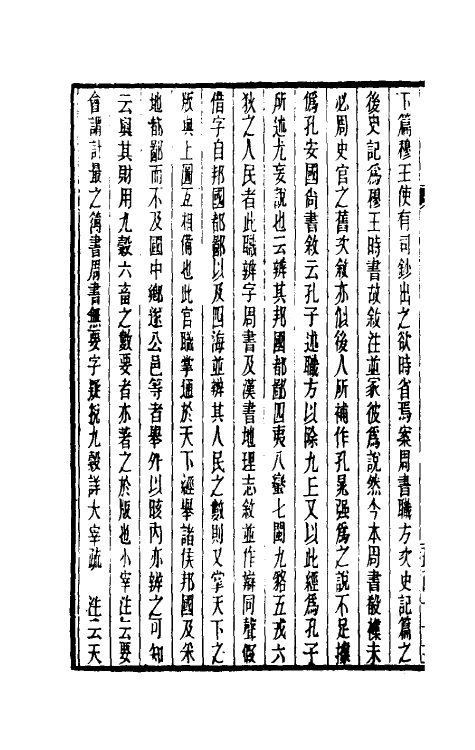 下篇穆王使有司鈔出之欲時省焉案周書職方次史記篇之
後史記爲穆王時書故敘注並冡彼爲說然今本周書殽襍未
必周史官之舊次敘亦似後人所補作孔晁強爲之說不足據
僞孔安國尙書敘云孔子述職方以除九丘又以此經爲孔子
所述尤妄說也云辨其邦國都鄙四夷八蠻七閩九貉五戎六
狄之人民者此職辨字周書及漢書地理志敘並作辯同聲假
借字自邦國都鄙以及四海並辨其人民之數則又掌天下之
版與上圖互相備也此官職掌通於天下經舉諸侯邦國及采
地都鄙而不及國中鄉遂公邑等者舉外以晐內亦辨之可知
云與其財用九穀六畜之數要者亦著之於版也小宰注云要
會謂計最之簿書周書無要字疑挩九穀詳大宰疏 注云天